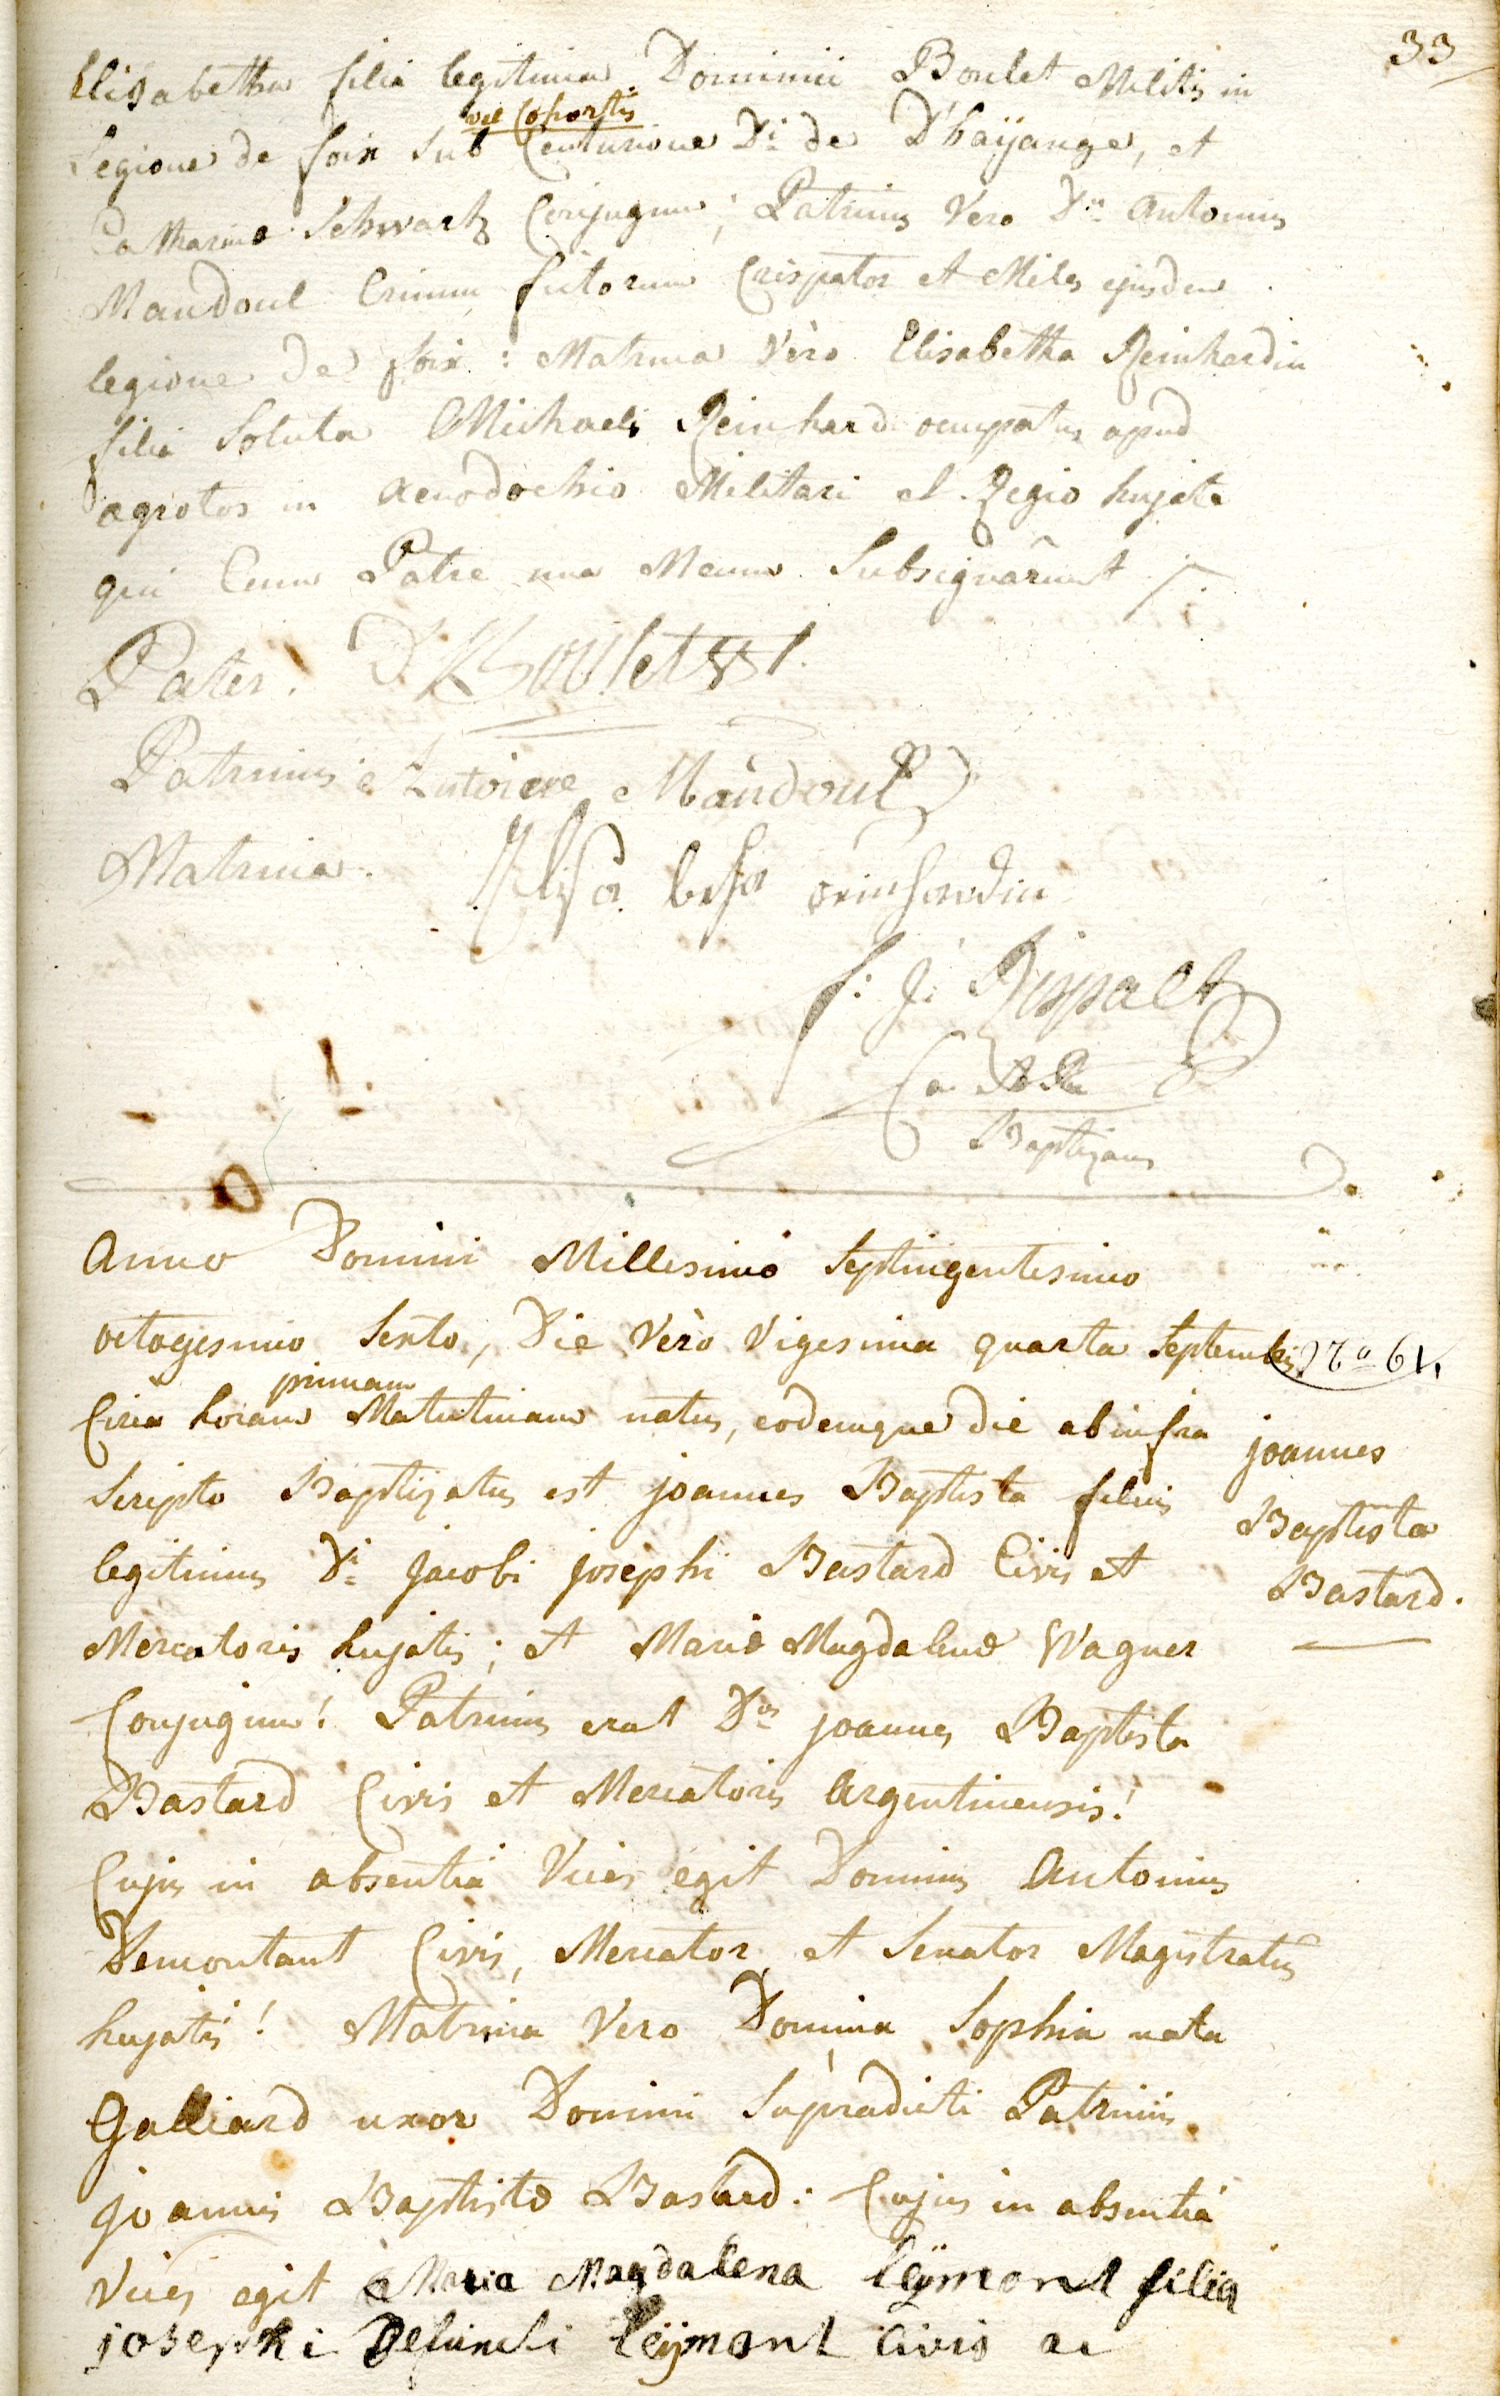 33
Elisabetha filia legitima Dominici Boulet Militis in
vel Cohortis
Legione de foix sub Centurione Di de D'haÿange, et
Catharinæ Schwartz Conjugum; Patrinus Vero Dns Antonius
Mandoul Crinium fictorum Crispator et Miles ejusdem
legione de foix: Matrina Vèro Elisabetha Reinhardin
filia Soluta Michaelis Reinhard occupatus apud
ægrotos in Xenodochio Militari et Regio hujate
qui Cum Patre una Mecum Subsignârunt
Pater. D. Boulet
Patrinus Antoine Mandoul
Matrina. Elisabetha reinhardin
f: J: Rispalt
Baptizans
Anno Domini Millesimo Septingentesimo
octogesimo Sexto, Die Vèro Vigesima quarta Septembris
No 61.
primam
Circa horam Matutinam natus, eodemque die ab infra
Scripto Baptizatus est joannes Baptista filius
joannes
Baptista
Bastard.
legitimus Di jacobi josephi Bastard Civis et
Mercatoris hujatis; et Mariæ Magdalenæ Wagner
Conjugum! Patrinus erat Dns joannes Baptista
Bastard Civis et Mercatoris Argentinensis!
Cujus in absentiâ Vices egit Dominus Antonius
Demontant Civis, Mercator, et Senator Magistratûs
hujatis! Matrina Vero Domina Sophia nata
Galliard uxor Domini Supradicti Patrinis
joannis Baptistæ Bastard: Cujus in absentiâ
Vices egit Maria Magdalena leÿmont filia
josephi Defuncti leÿmont Civis ac